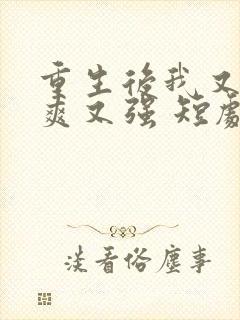 重生后我又
爽又强 短剧
淡看俗尘事